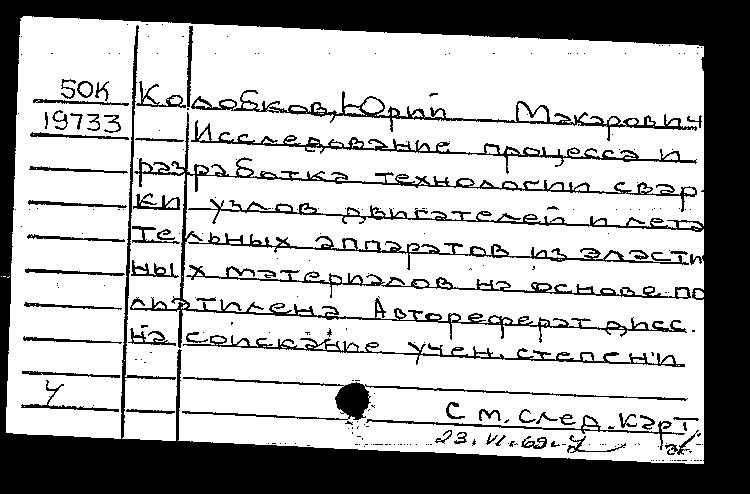 50К Колобков, Юрий Макарович
19733 Исследование процесса и
разработка технологии свар-
ки узлов двигателей и лета
тельных аппаратов из эласти
ных материалов на основе по
льэтилена Автореферат дисс.
на соискание учен. степени
Ч
См. след. карт
23.VI.69.